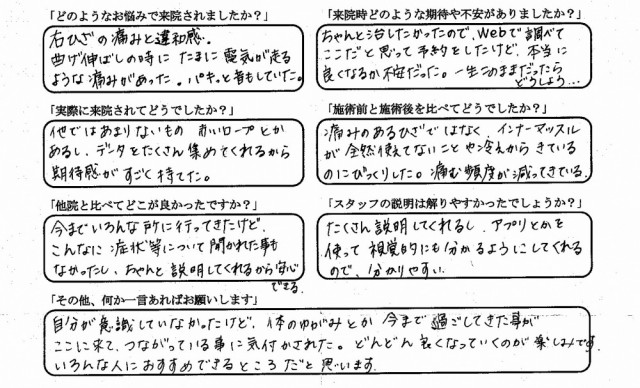 「どのようなお悩みで来院されましたか？」
右ひざの痛みと違和感。
曲げ伸ばしの時にたまに電気が走る
ような痛みがあった。パキっと音もしていた。
「来院時どのような期待や不安がありましたか？」
ちゃんと治したかったので、Webで調べて
ここだと思って予約をしたけど、本当に
良くなるか不安だった。一生このままだったら
どうしよう…
「実際に来院されてどうでしたか？」
他ではあまりないもの 赤いロープとか
あるし、データをたくさん集めてくれるから
期待感がすごく持てた。
「施術前と施術後を比べてどうでしたか？」
痛みのあるひざではなく、インナーマッスル
が全然使えてないことや冷えからきている
のにびっくりした。痛む頻度が減ってきている。
「他院と比べてどこが良かったですか？」
今までいろんな所に行ってきたけど、
こんなに症状等について聞かれた事も
なかったし、ちゃんと説明してくれるから安心
できる。
「スタッフの説明は解りやすかったでしょうか？」
たくさん説明してくれるし、アプリとかを
使って視覚的にも分かるようにしてくれる
ので、分かりやすい。
「その他、何か一言あればお願いします」
自分が意識していなかったけど、体のゆがみとか今まで過ごしてきた事が
ここに来て、つながっている事に気付かされた。どんどん良くなっていくのが楽しみです。
いろんな人におすすめできるところだと思います。